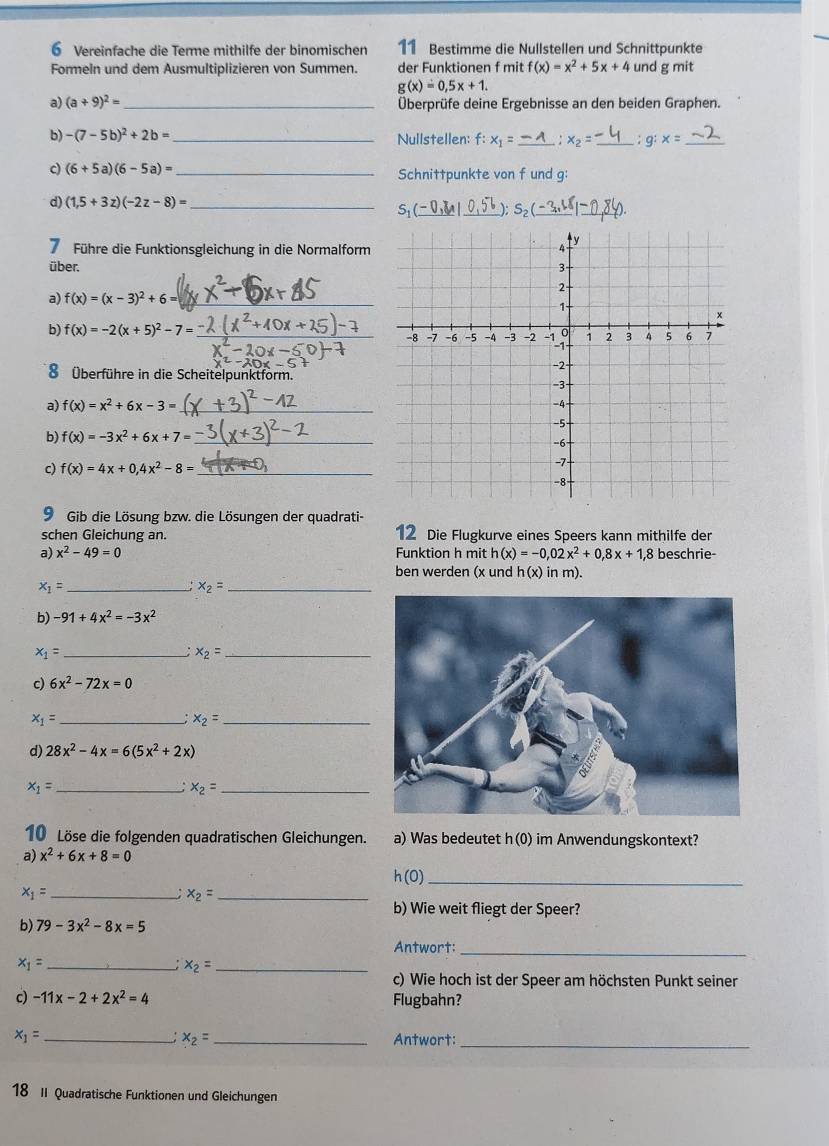 6 Vereinfache die Terme mithilfe der binomischen
Formeln und dem Ausmultiplizieren von Summen.
a) (a + 9)² =
b) -(7 - 5b)² + 2b =
c) (6 + 5a)(6 - 5a) =
d) (1,5 + 3z)(-2z - 8) =
7 Führe die Funktionsgleichung in die Normalform
über.
a) f(x) = (x - 3)² + 6 = x² - 6x + 15
b) f(x) = -2(x + 5)² - 7 = -2·(x² + 10x + 25) - 7
x² - 20x - 50) - 7
x² - 20x - 57
8 Überführe in die Scheitelpunktform.
a) f(x) = x² + 6x - 3 = (x + 3)² - 12
b) f(x) = -3x² + 6x + 7 = -3(x + 3)² - 2
c) f(x) = 4x + 0,4x² - 8 =
9 Gib die Lösung bzw. die Lösungen der quadrati-
schen Gleichung an.
a) x² - 49 = 0
x₁ = ; x₂ =
b) -91 + 4x² = -3x²
x₁ = ; x₂ =
c) 6x² - 72x = 0
x₁ = ; x₂ =
d) 28x² - 4x = 6(5x² + 2x)
x₁ = ; x₂ =
10 Löse die folgenden quadratischen Gleichungen.
a) x² + 6x + 8 = 0
x₁ = ; x₂ =
b) 79 - 3x² - 8x = 5
x₁ = ; x₂ =
c) -11x - 2 + 2x² = 4
x₁ = ; x₂ =
11 Bestimme die Nullstellen und Schnittpunkte
der Funktionen f mit f(x) = x² + 5x + 4 und g mit
g(x) = 0,5x + 1.
Überprüfe deine Ergebnisse an den beiden Graphen.
Nullstellen: f: x₁ = -1 ; x₂ = -4 ; g: x = -2
Schnittpunkte von f und g:
S₁( | 0,56 ); S₂( -3,68 | -0,84 ).
y
4
3
2
1
x
-8 -7 -6 -5 -4 -3 -2 -1 0 1 2 3 4 5 6 7
-1
-2
-3
-4
-5
-6
-7
-8
12 Die Flugkurve eines Speers kann mithilfe der
Funktion h mit h(x) = -0,02x² + 0,8x + 1,8 beschrie-
ben werden (x und h(x) in m).
a) Was bedeutet h(0) im Anwendungskontext?
h(0)
b) Wie weit fliegt der Speer?
Antwort:
c) Wie hoch ist der Speer am höchsten Punkt seiner
Flugbahn?
Antwort:
18 II Quadratische Funktionen und Gleichungen